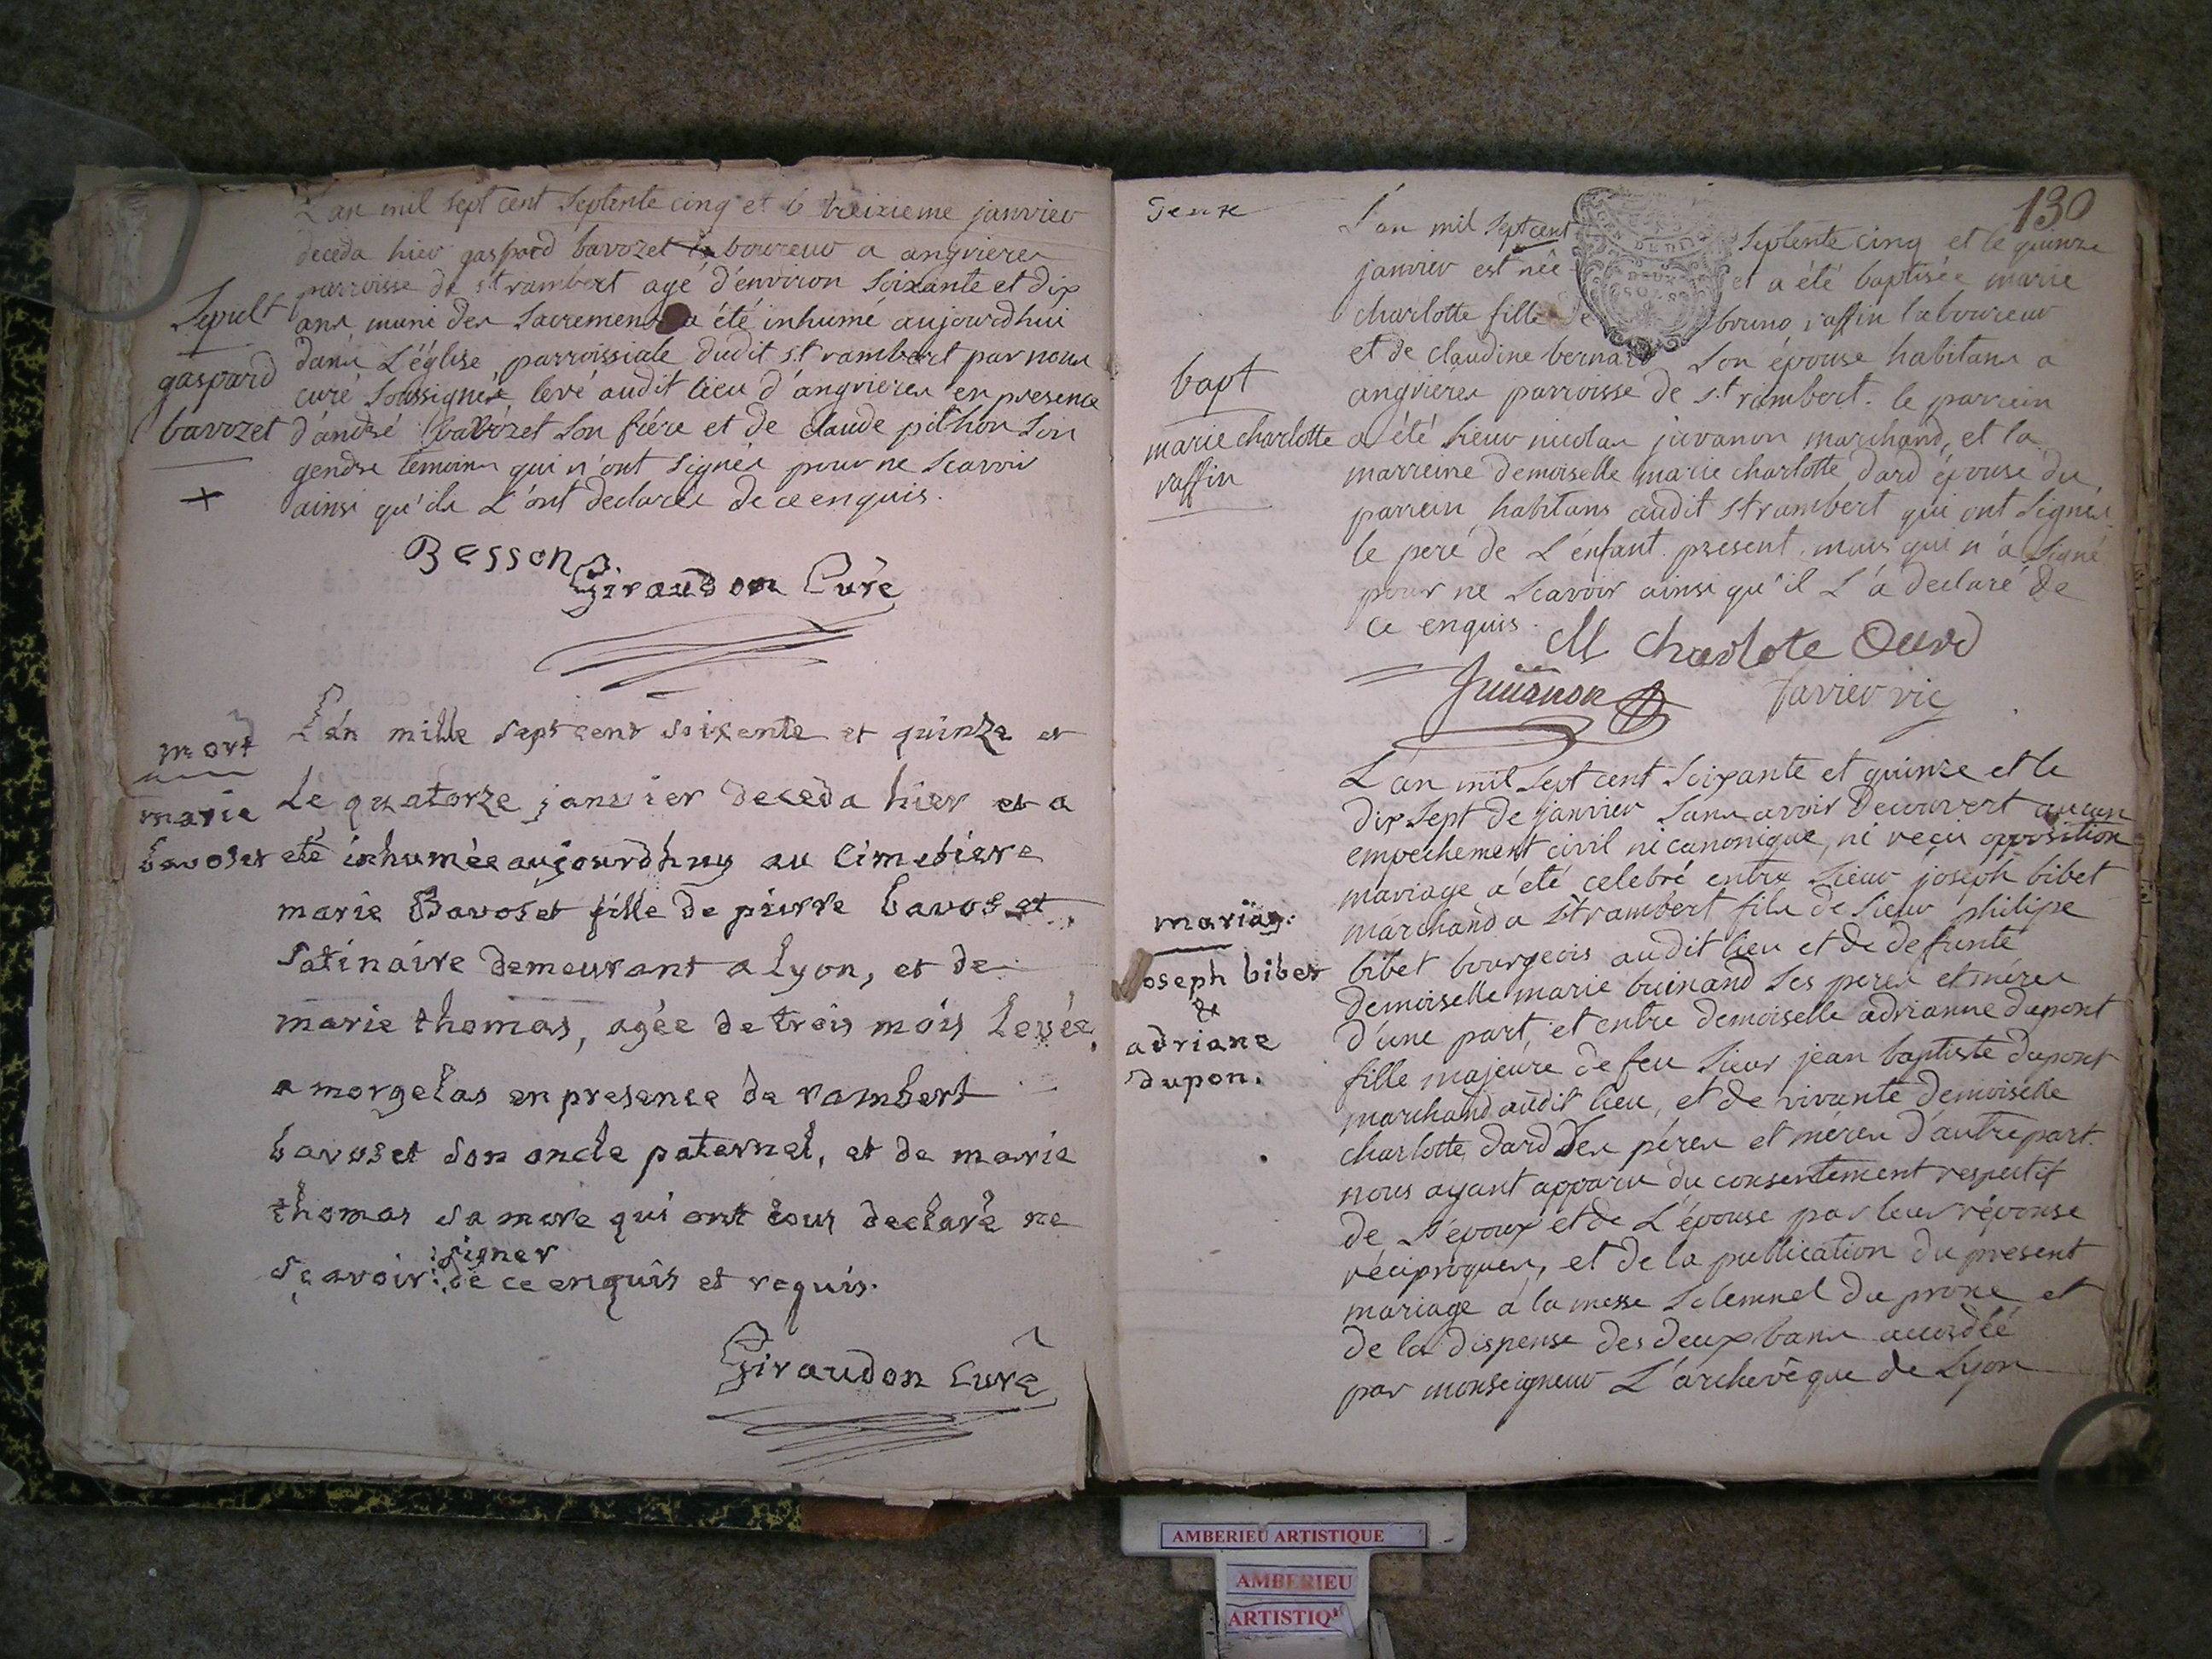 L'an mil sept cent septente cinq et le treizieme janvier
deceda hier gaspard bavozet laboureur a angrieres
parroisse de st rambert agé d'environ soixante et dix
ans muni des sacremens a été inhumé aujourdhui
dans L'église parroissiale dudit st rambert par nous
curé soussigné levé audit lieu d'angrieres en presence
d'andré bavozet son frére et de claude pithon son
gendre temoins qui n'ont signés pour ne scavoir
ainsi qu'ils L'ont declarés de ce enquis.
Sepult
gaspard
bavozet
+
Besson
Giraudon Curé
mort
marie
bavoset
L'an mille sept cent soixente et quinze et
le quatorze janvier deceda hier et a
eté inhumée aujourdhuy au cimetiere
marie Bavoset fille de pierre bavoset
satinaire demeurant a Lyon, et de
marie thomas, agée de trois mois Levée
a morgelas en presence de rambert
bavoset son oncle paternel, et de marie
thomas sa mere qui ont tous declaré ne
signer
sçavoir de ce enquis et requis.
Giraudon Curé
130
L'an mil sept cent septente cinq et le quinze
janvier est née et a été baptisée marie
charlotte fille de bruno raffin laboureur
et de claudine bernard son épouse habitans a
angrieres parroisse de st rambert. le parrein
a été sieur nicolas juvanon marchand, et la
marreine demoiselle marie charlotte dard épouse du
parrein habitans audit st rambert qui ont signés
le pere de L'enfant present mais qui n'a signé
pour ne scavoir ainsi qu'il L'a declaré de
ce enquis.
bapt
marie charlotte
raffin
M Charlote Durd
Juvanon
Tavier vic
L'an mil sept cent soixante et quinze et le
dix sept de janvier sans avoir decouvert aucun
empechement civil ni canonique, ni recu opposition
mariage a été celebré entre sieur joseph bibet
marchand a st rambert fils de sieur philipe
bibet bourgeois audit lieu et de defunte
demoiselle marie buinand ses peres et méres
d'une part, et entre demoiselle adrianne dupont
fille majeure de feu sieur jean baptiste dupont
marchand audit lieu, et de vivante demoiselle
charlotte dard ses péres et méres d'autre part.
nous ayant apparu du consentement respectif
de L'époux et de L'épouse par leur réponse
réciproques, et de la publication du présent
mariage a la messe solemnel du prone et
de la dispense des deux bans accordée
par monseigneur L'archevêque de Lyon
mariag.
joseph bibet
&
adriane
dupon.
AMBERIEU ARTISTIQUE
AMBERIEU
ARTISTIQ